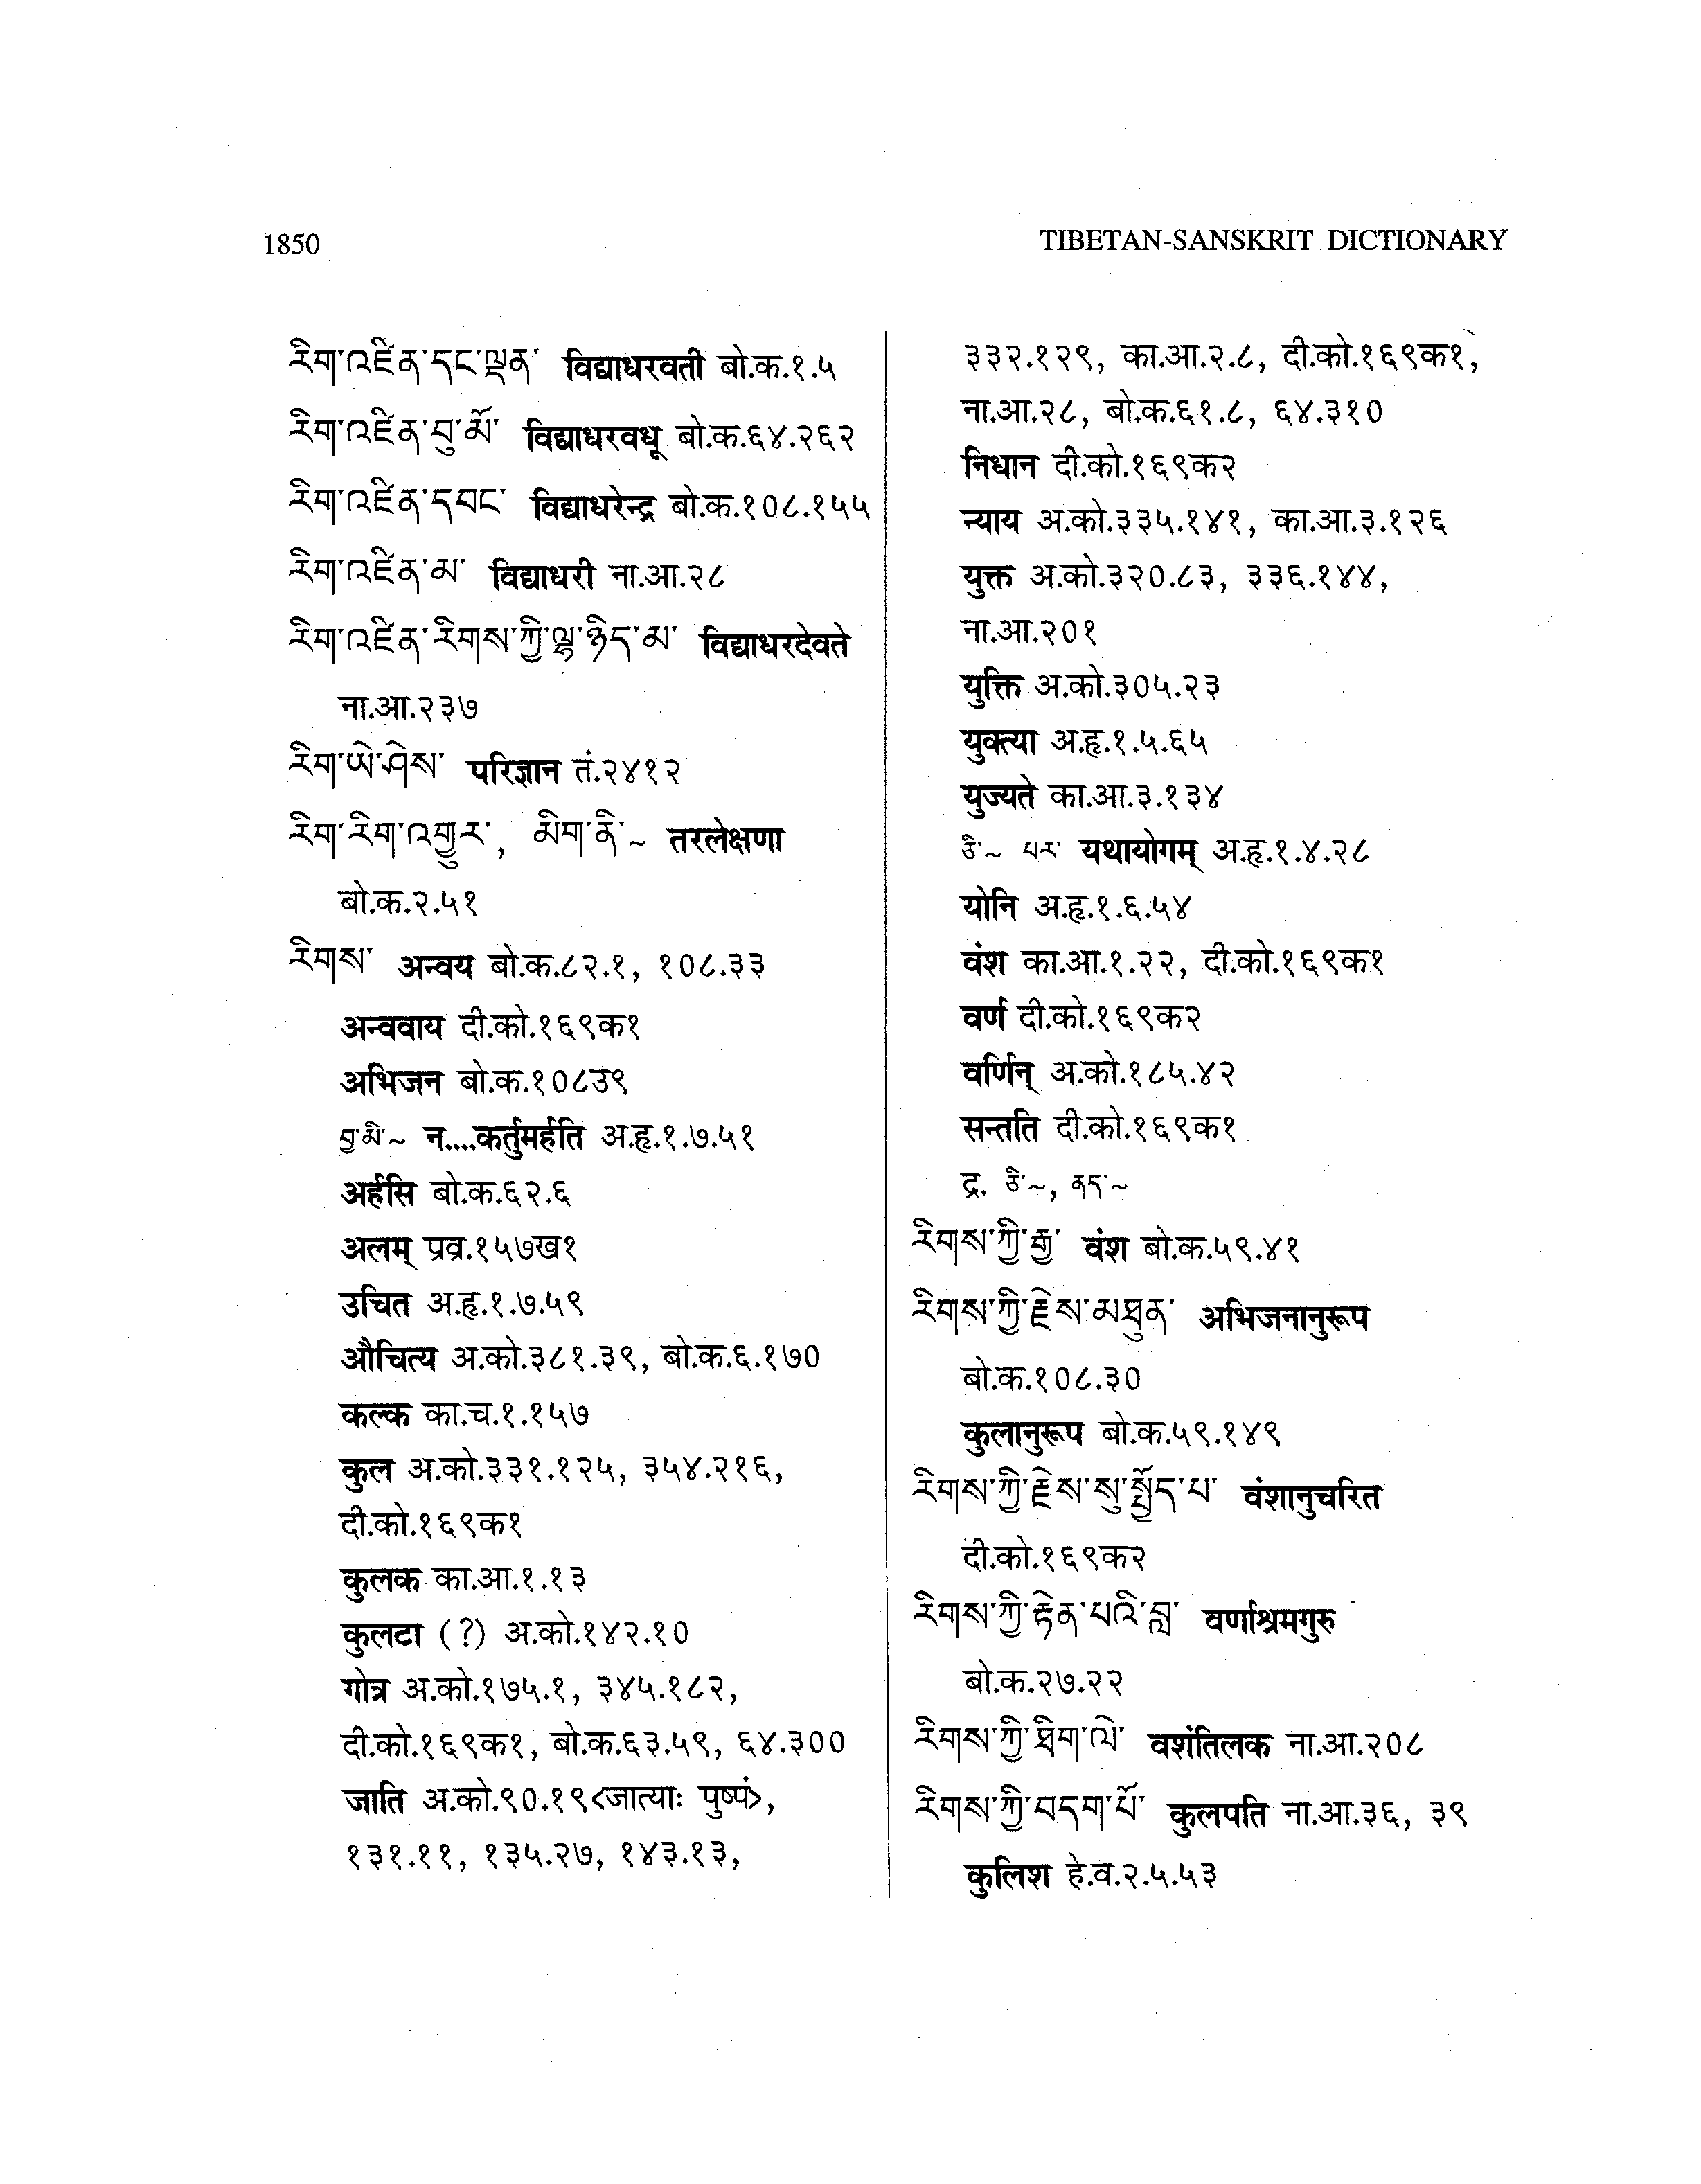 1850
TIBETAN-SANSKRIT DICTIONARY
རིག་འཛིན་དང་ལྡན་ विद्याधरवती बो.क.१.५
རིག་འཛིན་བུ་མོ་ विद्याधरवधू बो.क.६४.२६२
རིག་འཛིན་དབང་ विद्याधरेन्द्र बो.क.१०८.१५५
རིག་འཛིན་མ་ विद्याधरी ना.आ.२८
རིག་འཛིན་རིགས་ཀྱི་ལྷ་ཉིད་མ་ विद्याधरदेवते
ना.आ.२३७
རིག་ཡེ་ཤེས་ परिज्ञान तं.२४१२
རིག་རིག་འགྱུར་, མིག་ནི་~ तरलेक्षणा
बो.क.२.५१
རིགས་ अन्वय बो.क.८२.१, १०८.३३
अन्ववाय दी.को.१६९क१
अभिजन बो.क.१०८उ९
བྱ་མི་~ न....कर्तुमर्हति अ.हृ.१.७.५१
अर्हसि बो.क.६२.६
अलम् प्रव्र.१५७ख१
उचित अ.हृ.१.७.५९
औचित्य अ.को.३८१.३९, बो.क.६.१७०
कल्क का.च.१.१५७
कुल अ.को.३३१.१२५, ३५४.२१६,
दी.को.१६९क१
कुलक का.आ.१.१३
कुलटा (?) अ.को.१४२.१०
गोत्र अ.को.१७५.१, ३४५.१८२,
दी.को.१६९क१, बो.क.६३.५९, ६४.३००
जाति अ.को.९०.१९<जात्याः पुष्पं>,
१३१.११, १३५.२७, १४३.१३,
३३२.१२९, का.आ.२.८, दी.को.१६९क१,
ना.आ.२८, बो.क.६१.८, ६४.३१०
निधान दी.को.१६९क२
न्याय अ.को.३३५.१४१, का.आ.३.१२६
युक्त अ.को.३२०.८३, ३३६.१४४,
ना.आ.२०१
युक्ति अ.को.३०५.२३
युक्त्या अ.हृ.१.५.६५
युज्यते का.आ.३.१३४
ཅི་~ པར་ यथायोगम् अ.हृ.१.४.२८
योनि अ.हृ.१.६.५४
वंश का.आ.१.२२, दी.को.१६९क१
वर्ण दी.को.१६९क२
वर्णिन् अ.को.१८५.४२
सन्तति दी.को.१६९क१
द्र. ཅི་~, ནད་~
རིགས་ཀྱི་རྒྱ་ वंश बो.क.५९.४१
རིགས་ཀྱི་རྗེས་མཐུན་ अभिजनानुरूप
बो.क.१०८.३०
कुलानुरूप बो.क.५९.१४९
རིགས་ཀྱི་རྗེས་སུ་སྤྱོད་པ་ वंशानुचरित
दी.को.१६९क२
རིགས་ཀྱི་རྟེན་པའི་བླ་ वर्णाश्रमगुरु
बो.क.२७.२२
རིགས་ཀྱི་ཐིག་ལེ་ वशंतिलक ना.आ.२०८
རིགས་ཀྱི་བདག་པོ་ कुलपति ना.आ.३६, ३९
कुलिश हे.व.२.५.५३